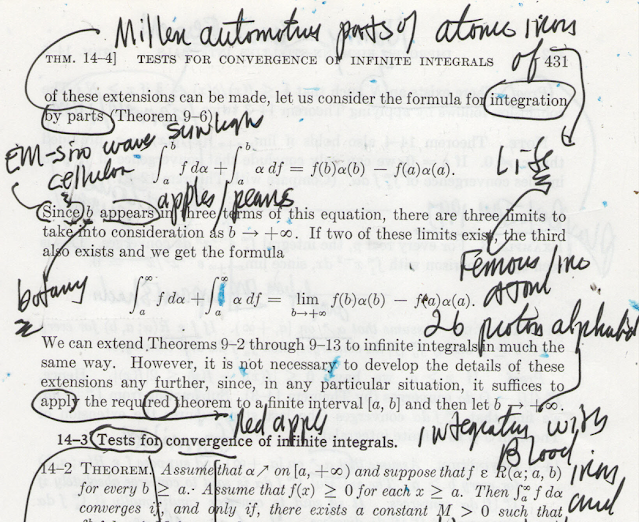 Millen automotive parts of atomic irons
of
THM. 14–4] TESTS FOR CONVERGENCE OF INFINITE INTEGRALS 431
of these extensions can be made, let us consider the formula for integration
by parts (Theorem 9–6)
EM-sin wave sunlight
cellulon
Life
∫_a^b f dα + ∫_a^b α df = f(b)α(b) − f(a)α(a).
apples/pears
Since b appears in three terms of this equation, there are three limits to
take into consideration as b → +∞. If two of these limits exist, the third
also exists and we get the formula
botany
Femous/
atom
∫_a^∞ f dα + ∫_a^∞ α df = lim_{b→+∞} f(b)α(b) − f(a)α(a).
26 proton alphabet
We can extend Theorems 9–2 through 9–13 to infinite integrals in much the
same way. However, it is not necessary to develop the details of these
extensions any further, since, in any particular situation, it suffices to
apply the required theorem to a finite interval [a, b] and then let b → +∞.
Red apple
integrity with
Blood
irons
and
14–3 Tests for convergence of infinite integrals.
14–2 THEOREM. Assume that α ↗ on [a, +∞) and suppose that f ε R(α; a, b)
for every b ≥ a. Assume that f(x) ≥ 0 for each x ≥ a. Then ∫_a^∞ f dα
converges if, and only if, there exists a constant M > 0 such that